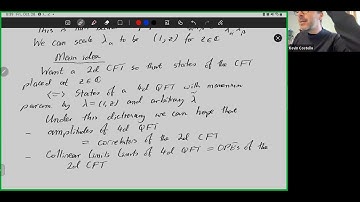 We can scale λα to be (1, z) for z∈ℂ
Main idea
Want a 2d CFT so that states of the CFT
placed at z∈ℂ
<=> States of a 4d QFT with momentum
param by λ=(1,z) and arbitrary λ̃
Under this dictionary we can hope that
- amplitudes of 4d QFT
= correlators of the 2d CFT
- Collinear Limits Limits of 4d QFT = OPEs of the
2d CFT
Kevin Costello